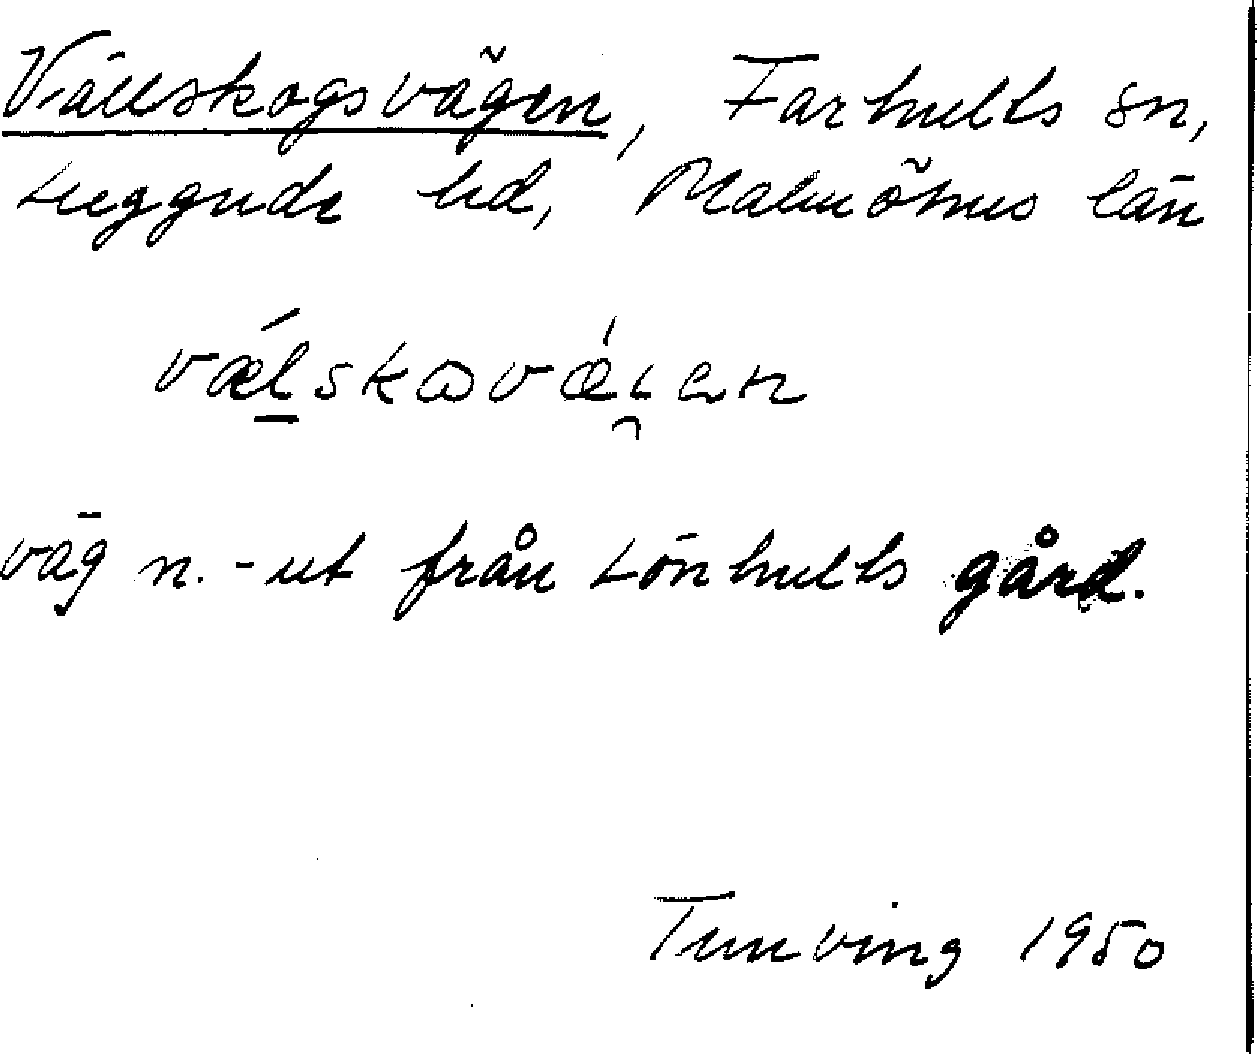 Vällskogsvägen, Farhults sn,
Luggude hd, Malmöhus län
vǽl̠skɷvǽi̯ən
väg n. - ut från Lönhults gård.
Tunving 1950